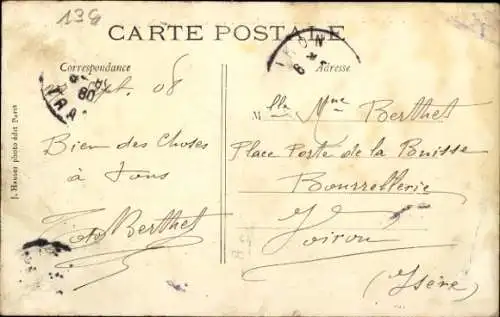 139
CARTE POSTALE
Correspondance
Adresse
08
Mlle Mme Berthet
Bien des Choses
Place Porte de la Buisse
à Tous
Bourrellerie
Berthet
Voiron
(Isère)
J. Hauser photo édit Paris